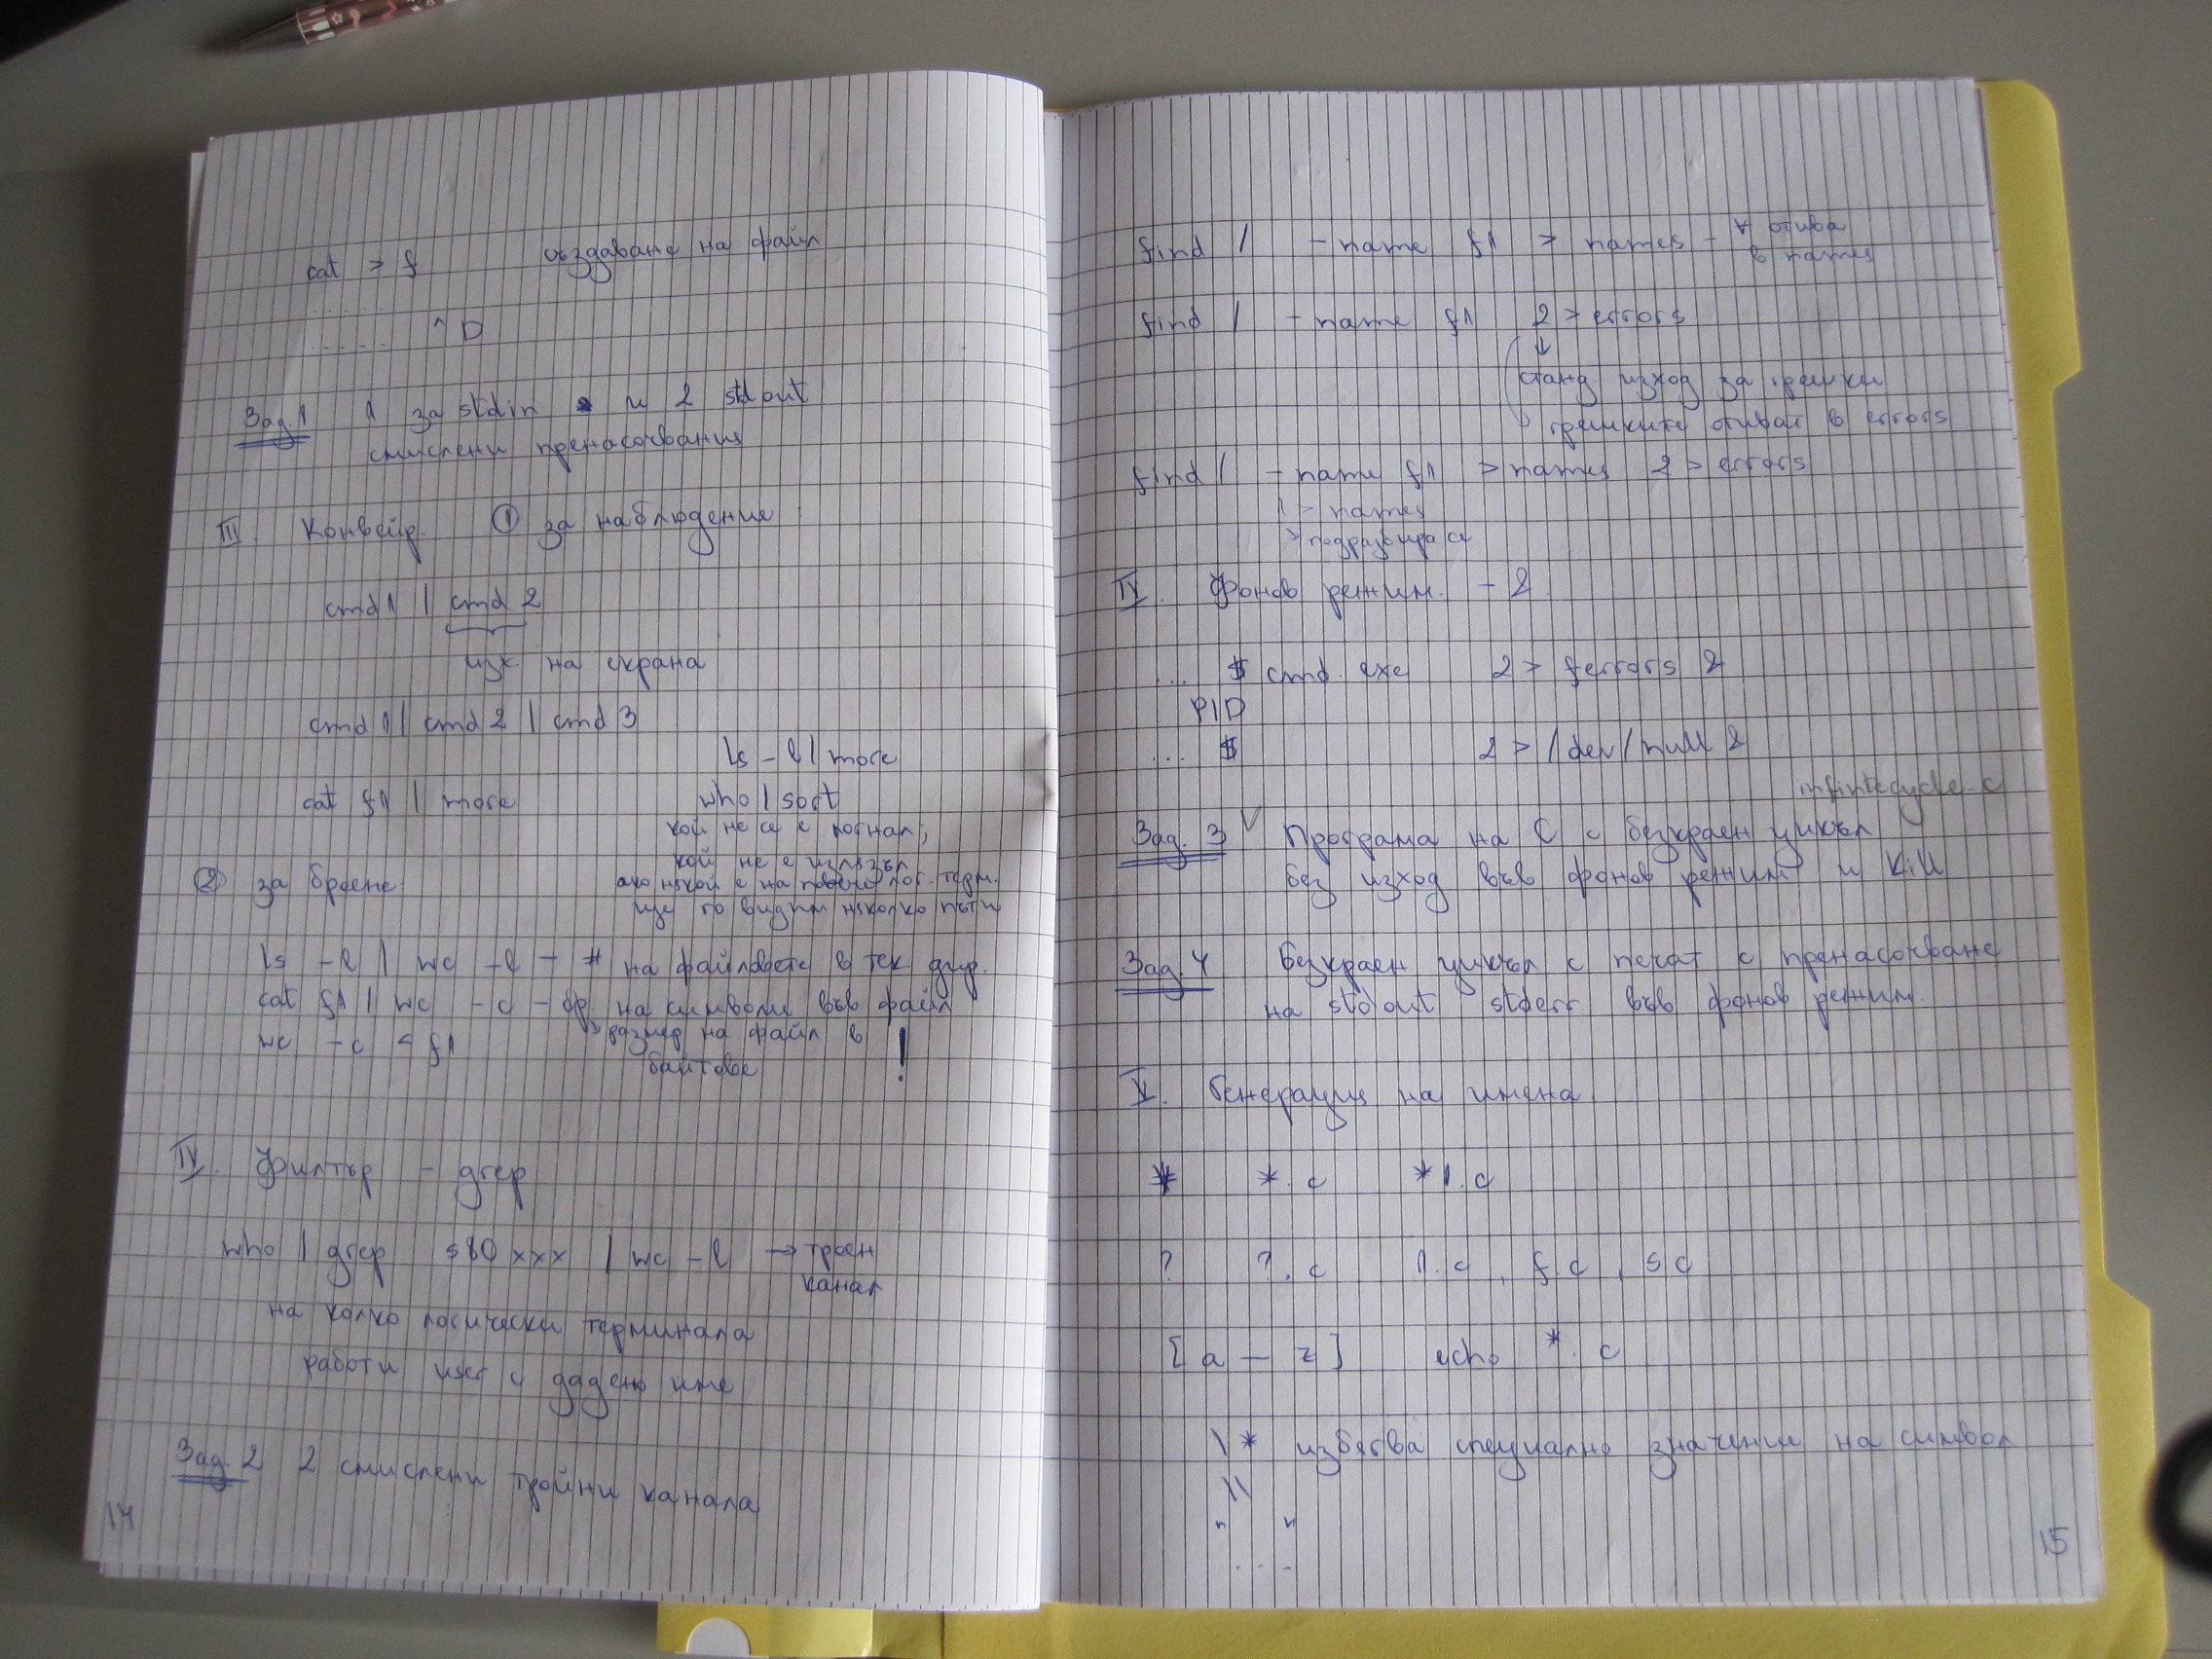 cat > f създаване на файл
.....
..... ^D
Зад 1 1 за stdin и 2 stdout
смислени пренасочвания
III. Конвейр. ① за наблюдение
cmd1 | cmd 2
изх. на екрана
cmd 1 | cmd 2 | cmd 3
ls - l | more
cat f1 | more who | sort
кой не се е логнал;
кой не е излязъл
② за броене: ако някой е на повече лог. терм.
ще го видим няколко пъти
ls - l | wc - l - # на файловете в тек дир.
cat f1 | wc - c - бр на символи във файл
wc - c < f1 > размер на файл в
байтове !
IV. Филтър - grep
who | grep s80xxx | wc - l → троен
канал
на колко логически терминала
работи user с дадено име
Зад. 2 2 смислени тройни канала
14
find / - name f1 > names - ∀ отива
в names
find / - name f1 2 > errors
↓
станд. изход за грешки
грешките отиват в errors
find / - name f1 > names 2 > errors
1 > names
> подразбира се
IV. Фонов режим. - &
... $ cmd. exe 2 > ferrors &
PID
... $ 2 > /dev/null &
infintecycle.c
Зад. 3 √ Програма на C с безкраен цикъл
без изход във фонов режим и Kill
Зад. 4 Безкраен цикъл с печат с пренасочване
на stdout stderr във фонов режим.
V. Генерация на имена
* *.c *1.c
? ?.c 1.c, f.c, s.c
[a - z] echo *.c
\* избягва специално значение на символ
\\
" "
...
15